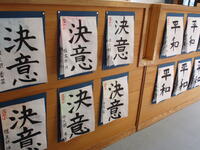 決意
決意
決意
平和
平和
平和
決意
決意
決意
平和
平和
平和